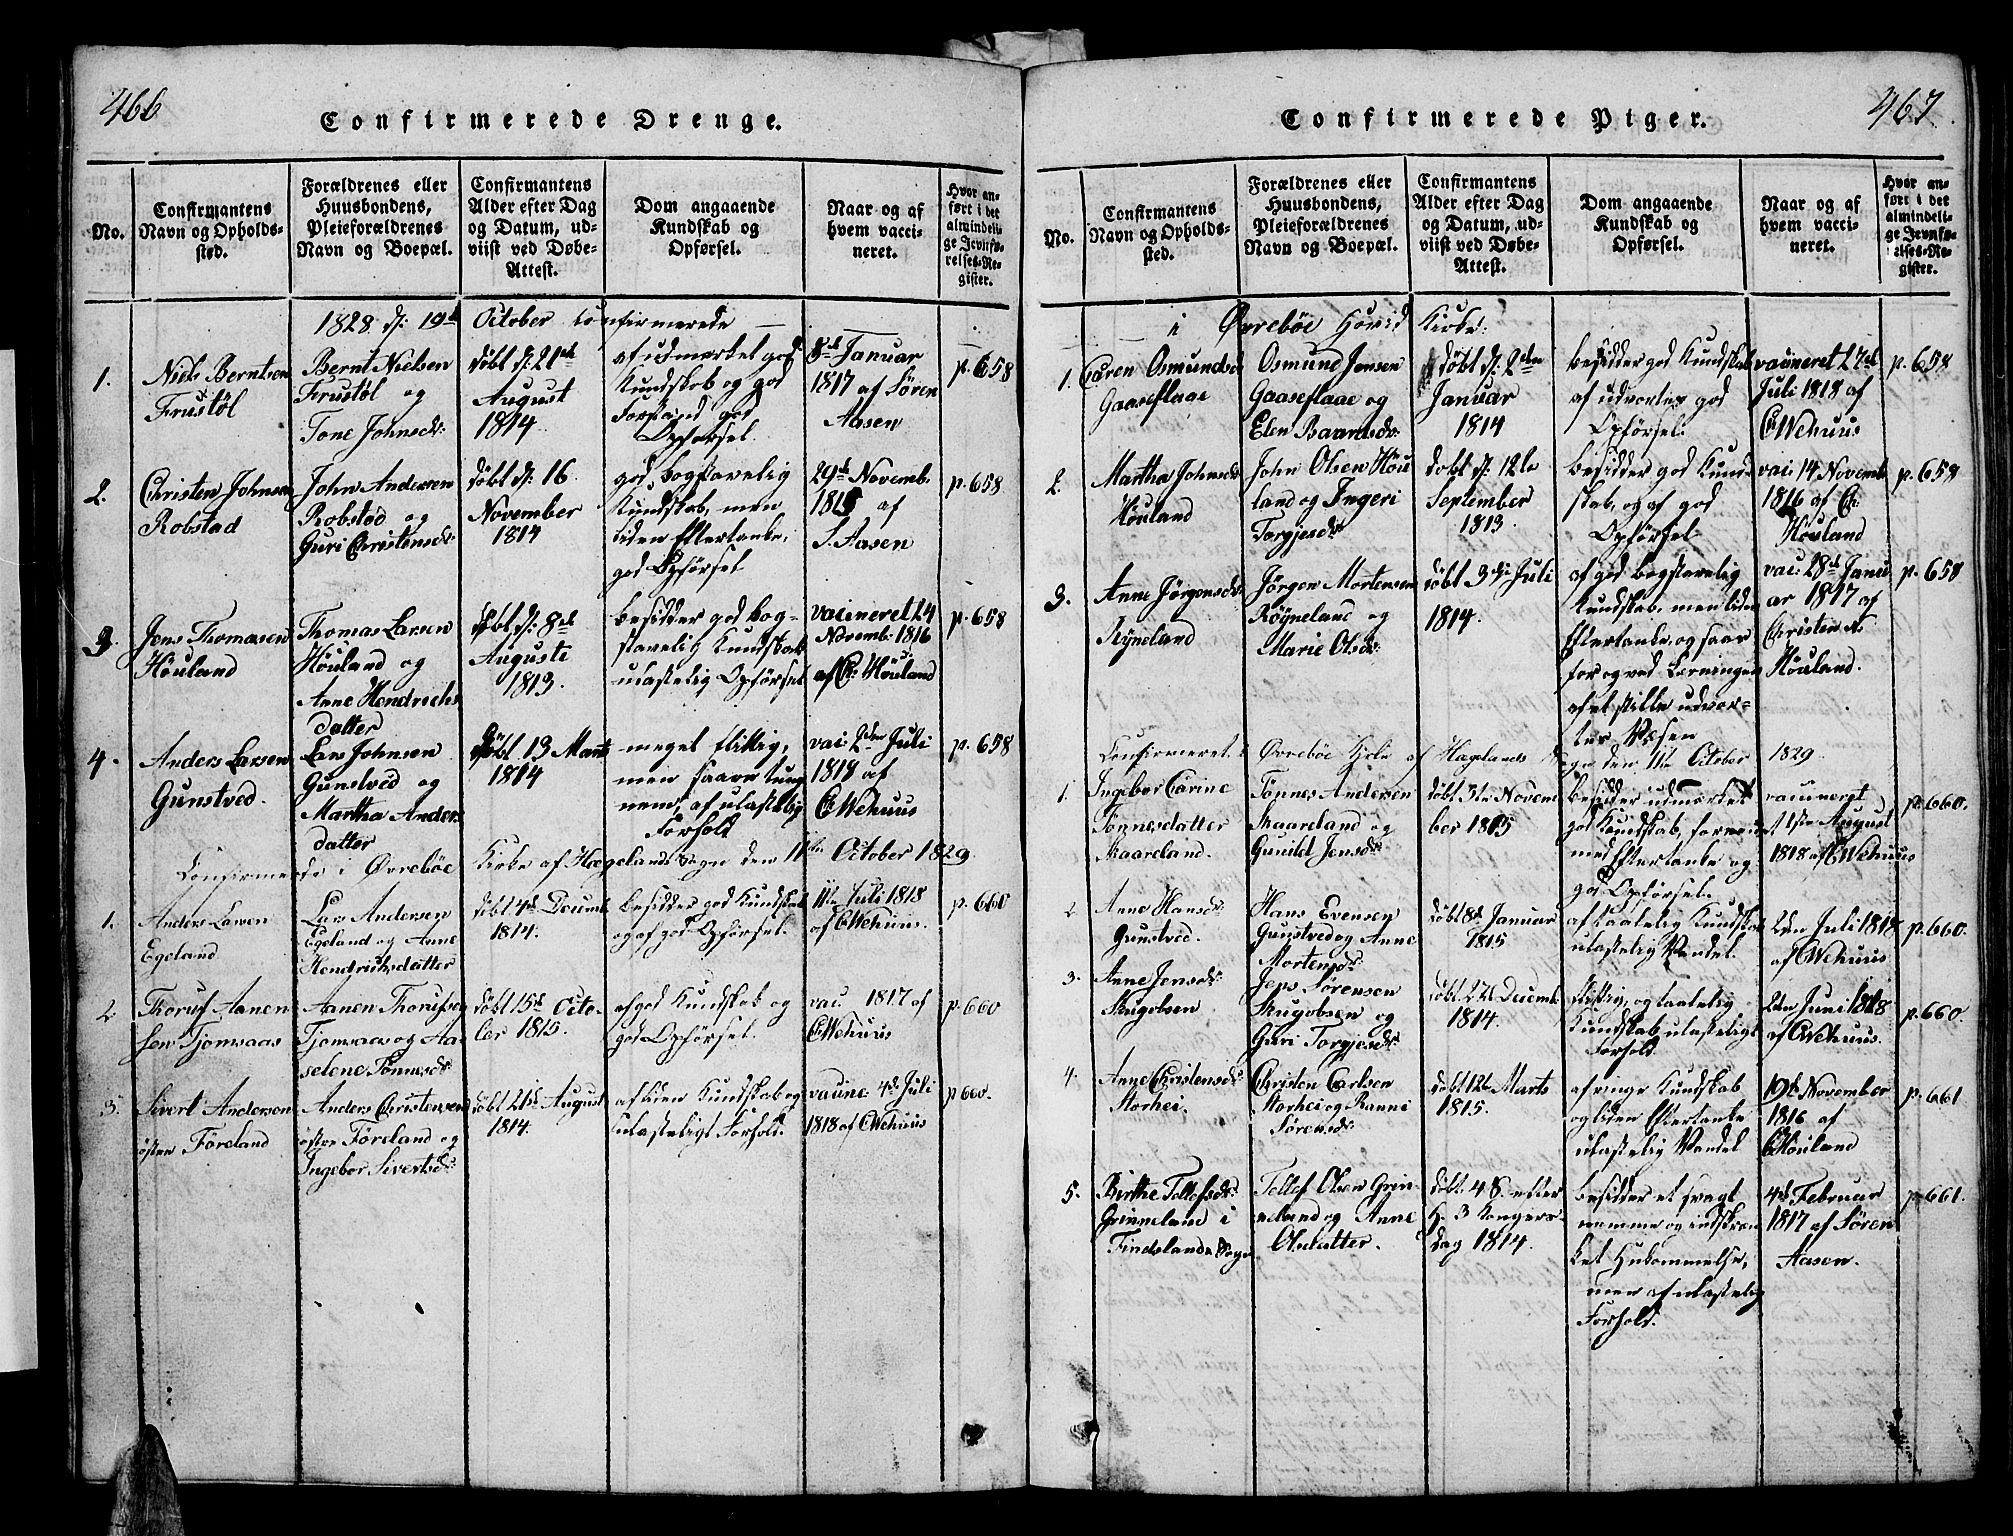 466
Confirmerede Drenge.
No.
Confirmantens
Navn og Opholds-
sted.
Forældrenes eller
Huusbondens,
Pleieforældrenes
Navn og Boepæl.
Confirmantens
Alder efter Dag
og Datum, ud-
viist ved Døbe-
Attest.
Dom angaaende
Kundskab og
Opførsel.
Naar og af
hvem vacci-
neret.
Hvor an-
ført i det
almindeli-
ge Jevnfø-
relses-Re-
gister.
1828 d: 19de October confirmerede
1.
Niels Berntsen
Frustøl
Bernt Nielsen
Frustøl og
Tone Johnsdr:
døbt d: 21de
August
1814
af udmerket god
Kundskab og god
Forstand god
Opførsel
8de Januar
1817 af Søren
Aasen
p. 658
2.
Christen Johnsen
Robstad
John Andersen
Robstad og
Guri Christensdr:
døbt d: 16
November
1814
god bogstavelig
Kundskab, men
liden Eftertanke,
god Opførsel
29de Novemb.
1815 af
S. Aasen
p. 658
3.
Jens Thomasen
Høuland
Thomas Larsen
Høuland og
Anne Hendrichs
datter
døbt d: 8de
Augusti
1813.
besidder god bog-
stavelig Kundskab
ulastelig Opførsel
vaccineret 24
Novemb: 1816
af C. Høuland
p. 658
4.
Anders Larsen
Gunstved.
Lars Johnsen
Gunstved og
Martha Anders
datter
døbt 13 Marts
1814
meget flittig,
men saare tung
nem, af ulastelig
Forhold
vac: 2den Juli
1818 af
C. Wehuus
p. 658
Confirmerede i Øvrebøe Kirke af Hægelands Sogn den 11te October 1829
1.
Anders Larsen
Egeland
Lars Andersen
Egeland og Anne
Hendrichsdatter
døbt 4de Decemb.
1814.
besidder god Kundskab
og af god Opførsel.
11te Juli 1818
af C. Wehuus.
p. 660
2
Thoruf Aanen
sen Tjomsaas
Aanen Thorufsen
Tjomsaas og Aa
selene Tønnesdr:
døbt 15de Octo-
ber 1815.
af god Kundskab og
god Opførsel.
vac. 1817 af
C. Wehuus
p. 660
3.
Sivert Andersen
østre Føreland
Anders Christensen
østre Føreland og
Ingebor Sivertsdr:
døbt 21de August
1814.
af liden Kundskab og
ulasteligt Forhold.
vaccine 4de Juli
1818 af C. Wehuus
p 660.
467
Confirmerede Piger.
No.
Confirmantens
Navn og Opholds-
sted.
Forældrenes eller
Huusbondens,
Pleieforældrenes
Navn og Boepæl.
Confirmantens
Alder efter Dag
og Datum, ud-
viist ved Døbe-
Attest.
Dom angaaende
Kundskab og
Opførsel.
Naar og af
hvem vacci-
neret.
Hvor an-
ført i det
almindeli-
ge Jevnfø-
relses-Re-
gister.
i Øvrebøe Hovid Kirke:
1.
Caren Osmundsd
Gaaseflaae
Osmund Jensen
Gaaseflaae og
Elen Baardsdr:
døbt d: 2den
Januar
1814
besidder god Kundskab
af udvortes god
Opførsel:
vaccineret 27de
Juli 1818 af
C. Wehuus
p. 658
2.
Martha Johnsdr:
Høuland
John Olsen Høu
land og Ingeri
Torgjesdr
døbt d: 12te
September
1813.
besidder god Kund
skab, og af god
Opførsel
vac: 14 Novemb:
1816 af C.
Høuland
p. 658
3.
Anne Jørgensdr:
Røyneland
Jørgen Mortensen
Røyneland og
Marie Olsdr:
døbt 3die Juli
1814.
af god bogstavelig
Kundskab, men liden
Eftertanke, og saar
for og ved Lærningen
af et stille udvor-
tes Væsen
vac: 28de Janu
ar 1817 af
Christen A.
Høuland.
p. 658
Confirmeret i Øvrebøe Kirke af Hægelands Sogn den 11te October 1829
1.
Ingebor Carine
Tønnesdatter
Skaareland.
Tønnes Andersen
Skaareland og
Gunild Jensdr:
døbt 3te Novem
ber 1815
besidder udmærket
god Kundskab, fornuft
med Eftertanke og
god Opførsel.
vaccineret
11te August
1818 af C. Wehuus
p. 660.
2
Anne Hansdr:
Gunstved.
Hans Evensen
Gunstved og Anne
Mortensdr:
døbt 8de Januar
1815
af taalelig Kundskab
ulastelig Vandel.
2den Juli 1818
af C. Wehuus
p. 660.
3.
Anne Jensdr:
Skugolsen
Jens Sørensen
Skugolsen og
Guri Torgjesdr:
døbt 27de Decemb
1814.
flittig, og taalelig
Kundskab, ulasteligt
Forhold
2den Juni 1818
af C. Wehuus.
p. 660.
4.
Anne Christensdr:
Storhei.
Christen Carlsen
Storhei og Ranni
Sørensdr:
døbt 12te Marts
1815.
af ringe Kundskab
og liden Eftertanke
ulastelig Vandel
19de November
1816 af
C. Høuland
p. 661
5.
Birthe Tellefsdr:
Grinneland i
Findslands Sogn
Tellef Olsen Grin-
neland og Anne
Olsdatter.
døbt 4 S. efter
H. 3 Konger-
dag 1814.
besidder et svagt
nemme og indskræn
ket Hukommelse,
men af ulastelig
Forhold.
4de Februar
1817 af Søren
Aasen.
p. 661.